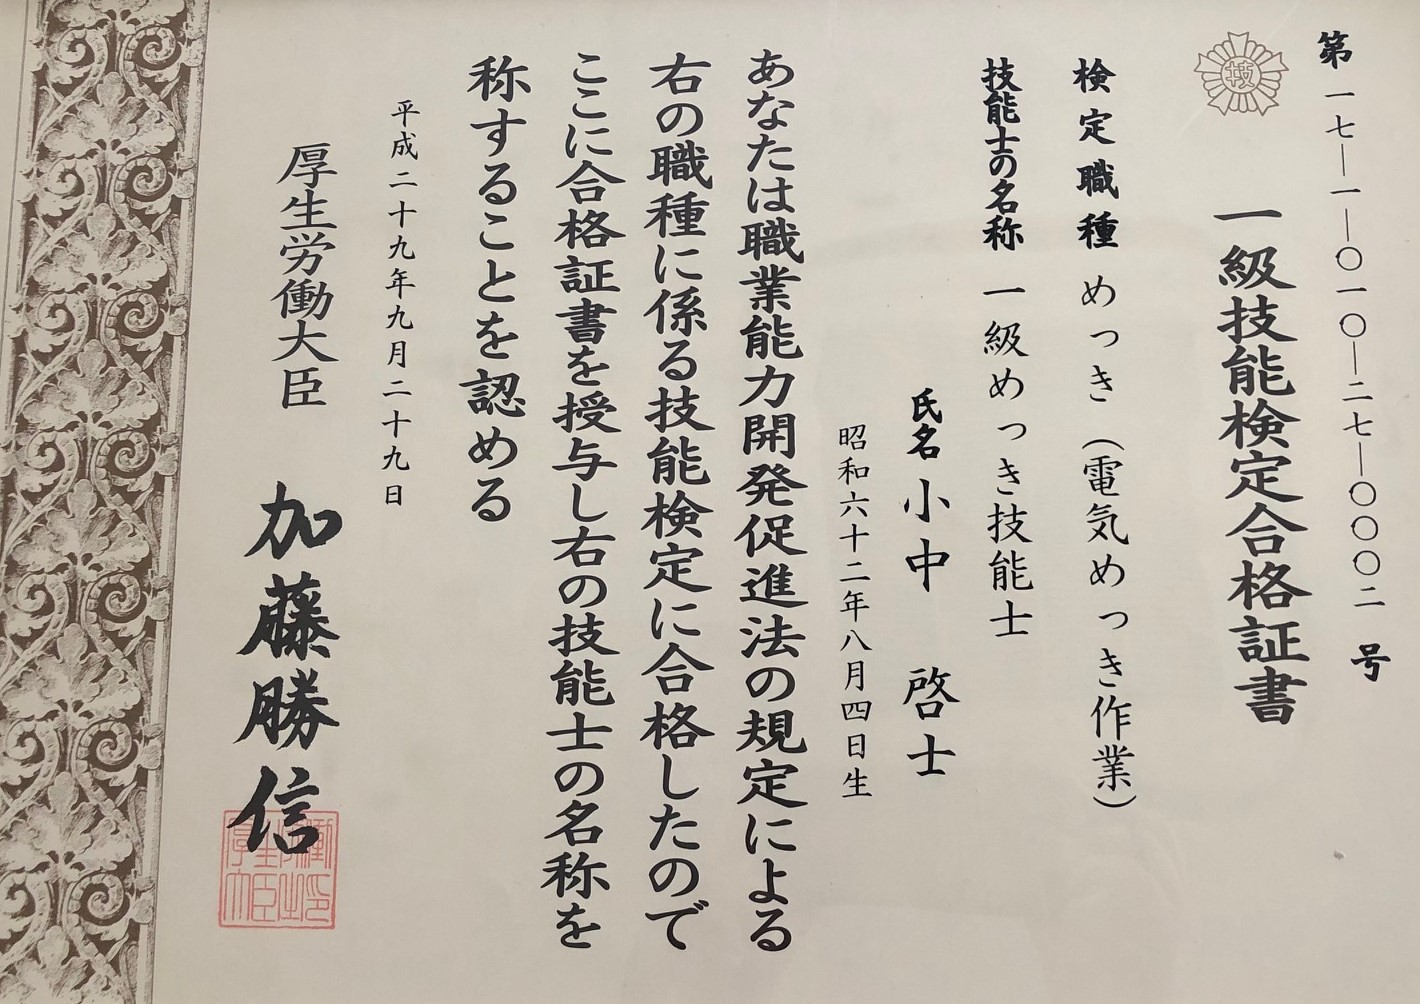 第一七―一―〇一〇―二七―〇〇〇二号
技
一級技能検定合格証書
検定職種 めっき(電気めっき作業)
技能士の名称 一級めっき技能士
氏名 小中 啓士
昭和六十二年八月四日生
あなたは職業能力開発促進法の規定による
右の職種に係る技能検定に合格したので
ここに合格証書を授与し右の技能士の名称を
称することを認める
平成二十九年九月二十九日
厚生労働大臣 加藤勝信